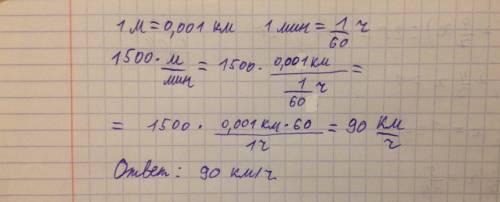 1 м = 0,001 км    1 мин = 1/60 ч
1500 · м/мин = 1500 · 0,001 км / (1/60 ч) =
= 1500 · 0,001 км · 60 / 1 ч = 90 км/ч
Ответ: 90 км/ч.